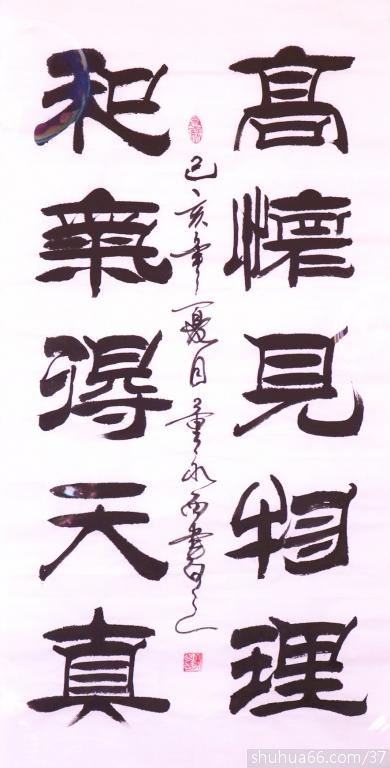 高懷見物理
和氣得天真
己亥年夏月董永西書之
shuhua66.com/37